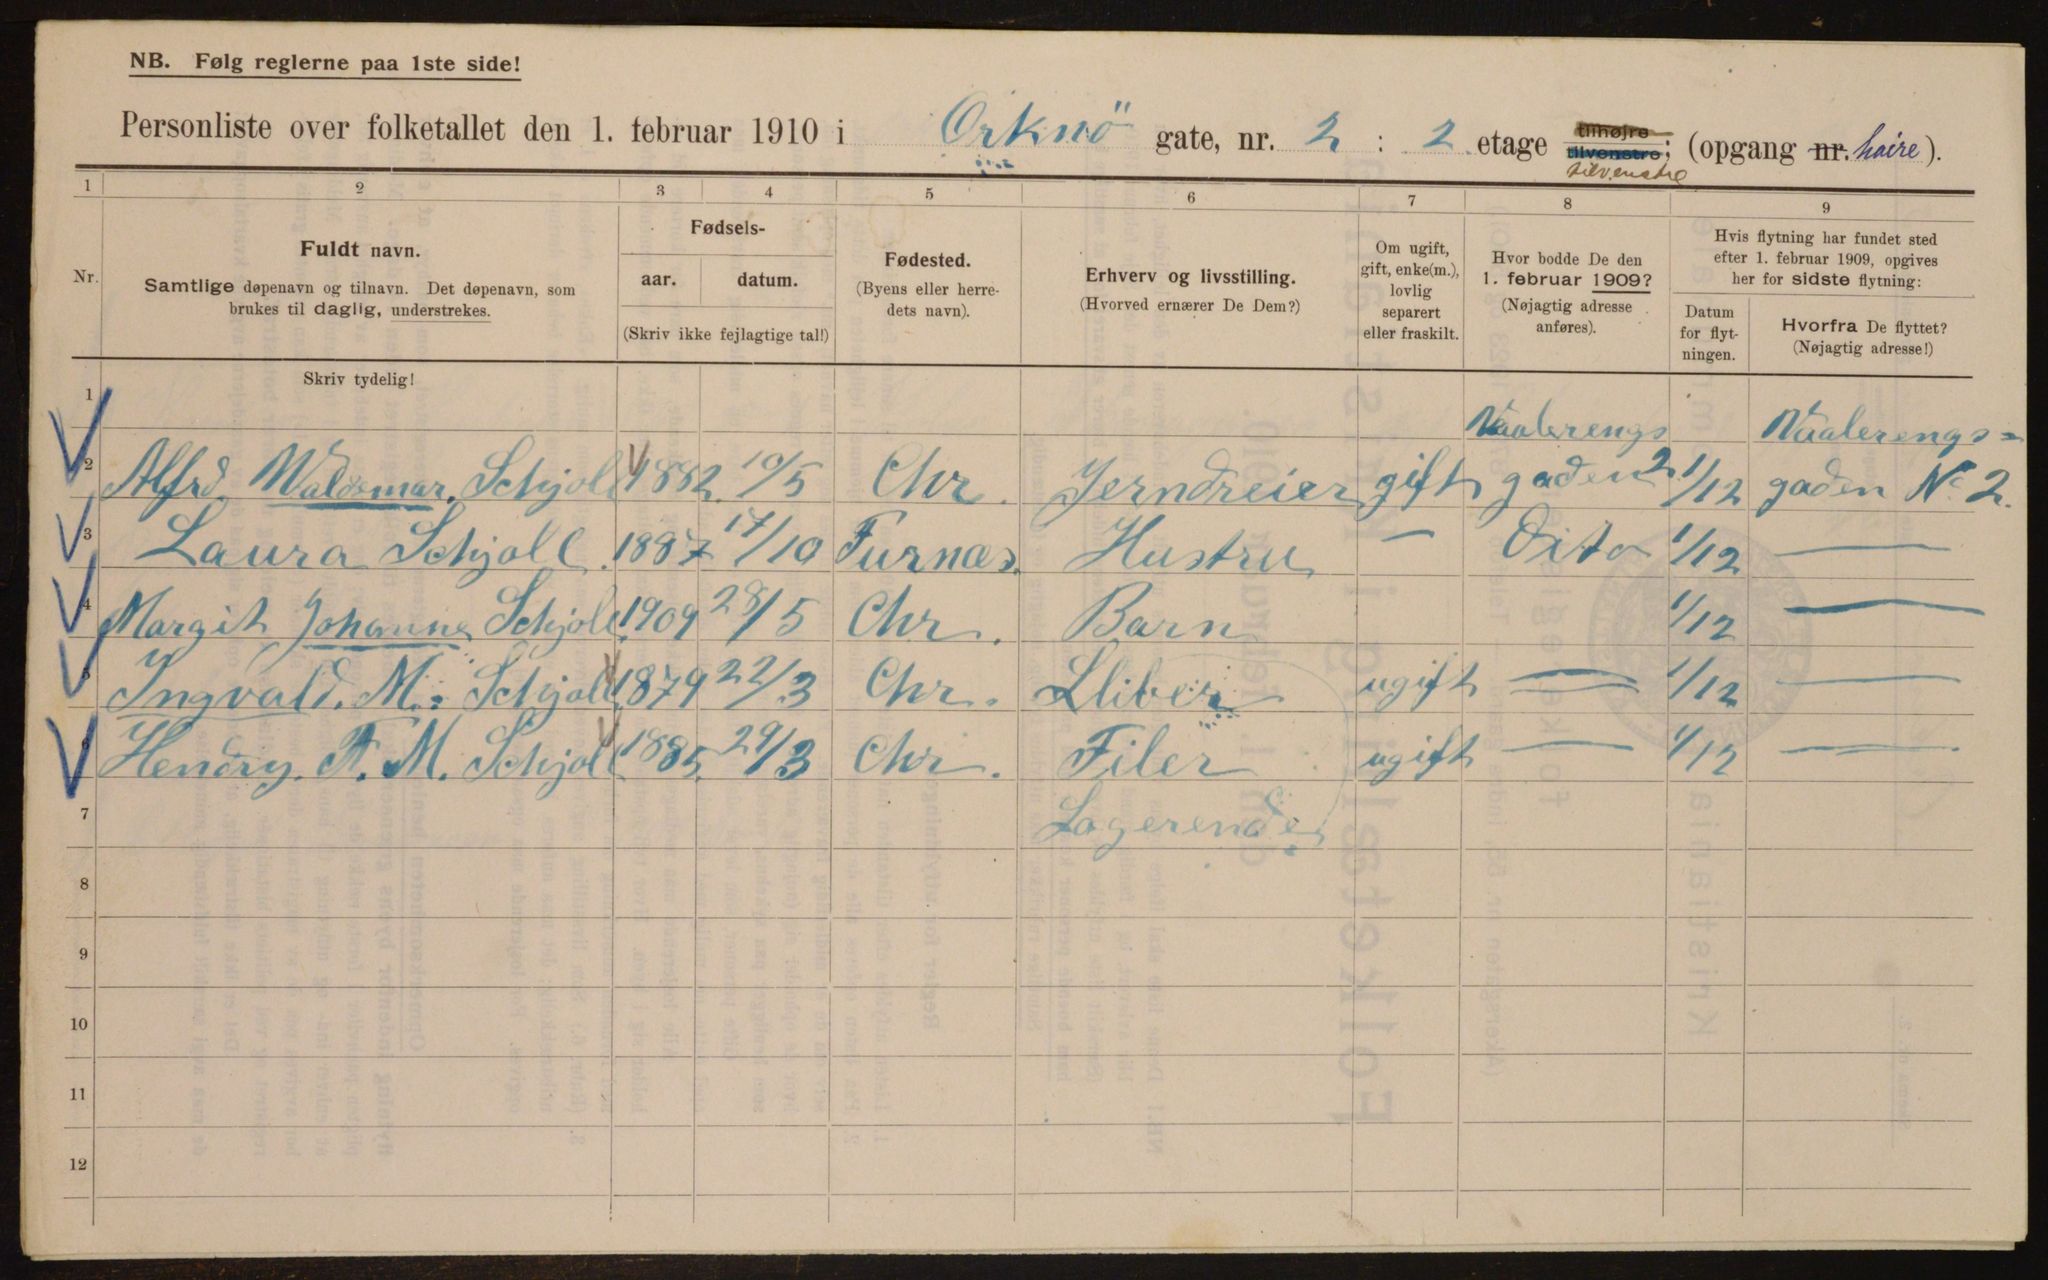 NB. Følg reglerne paa 1ste side!
Personliste over folketallet den 1. februar 1910 i Orknö gate, nr. 2 : 2 etage tilhøjre tilvenstre; (opgang nr. høire).
tilvenstre
1 2 3 4 5 6 7 8 9
Nr.
Fuldt navn.
Samtlige døpenavn og tilnavn. Det døpenavn, som
brukes til daglig, understrekes.
Fødsels-
aar. datum.
(Skriv ikke fejlagtige tal!)
Fødested.
(Byens eller herre-
dets navn).
Erhverv og livsstilling.
(Hvorved ernærer De Dem?)
Om ugift,
gift, enke(m.),
lovlig
separert
eller fraskilt.
Hvor bodde De den
1. februar 1909?
(Nøjagtig adresse
anføres).
Hvis flytning har fundet sted
efter 1. februar 1909, opgives
her for sidste flytning:
Datum
for flyt-
ningen.
Hvorfra De flyttet?
(Nøjagtig adresse!)
Skriv tydelig!
1 Vaalerengs Vaalerengs=
2 Alfred Waldemar. Schjoll 1882. 10/5 Chr. Jerndreier gift gaden 2 1/12 gaden No 2.
3 Laura Schjoll. 1887 17/10 Furnæs. Hustru — Dito 1/12 —
4 Margit Johanne Schjoll. 1909 28/5 Chr. Barn 1/12 —
5 Ingvald. M. Schjoll 1879 22/3 Chr. Sliber ugift — 1/12 —
6 Hendry. F. M. Schjoll 1885. 29/3 Chr. Filer ugift — 1/12 —
7 Logerende
8
9
10
11
12